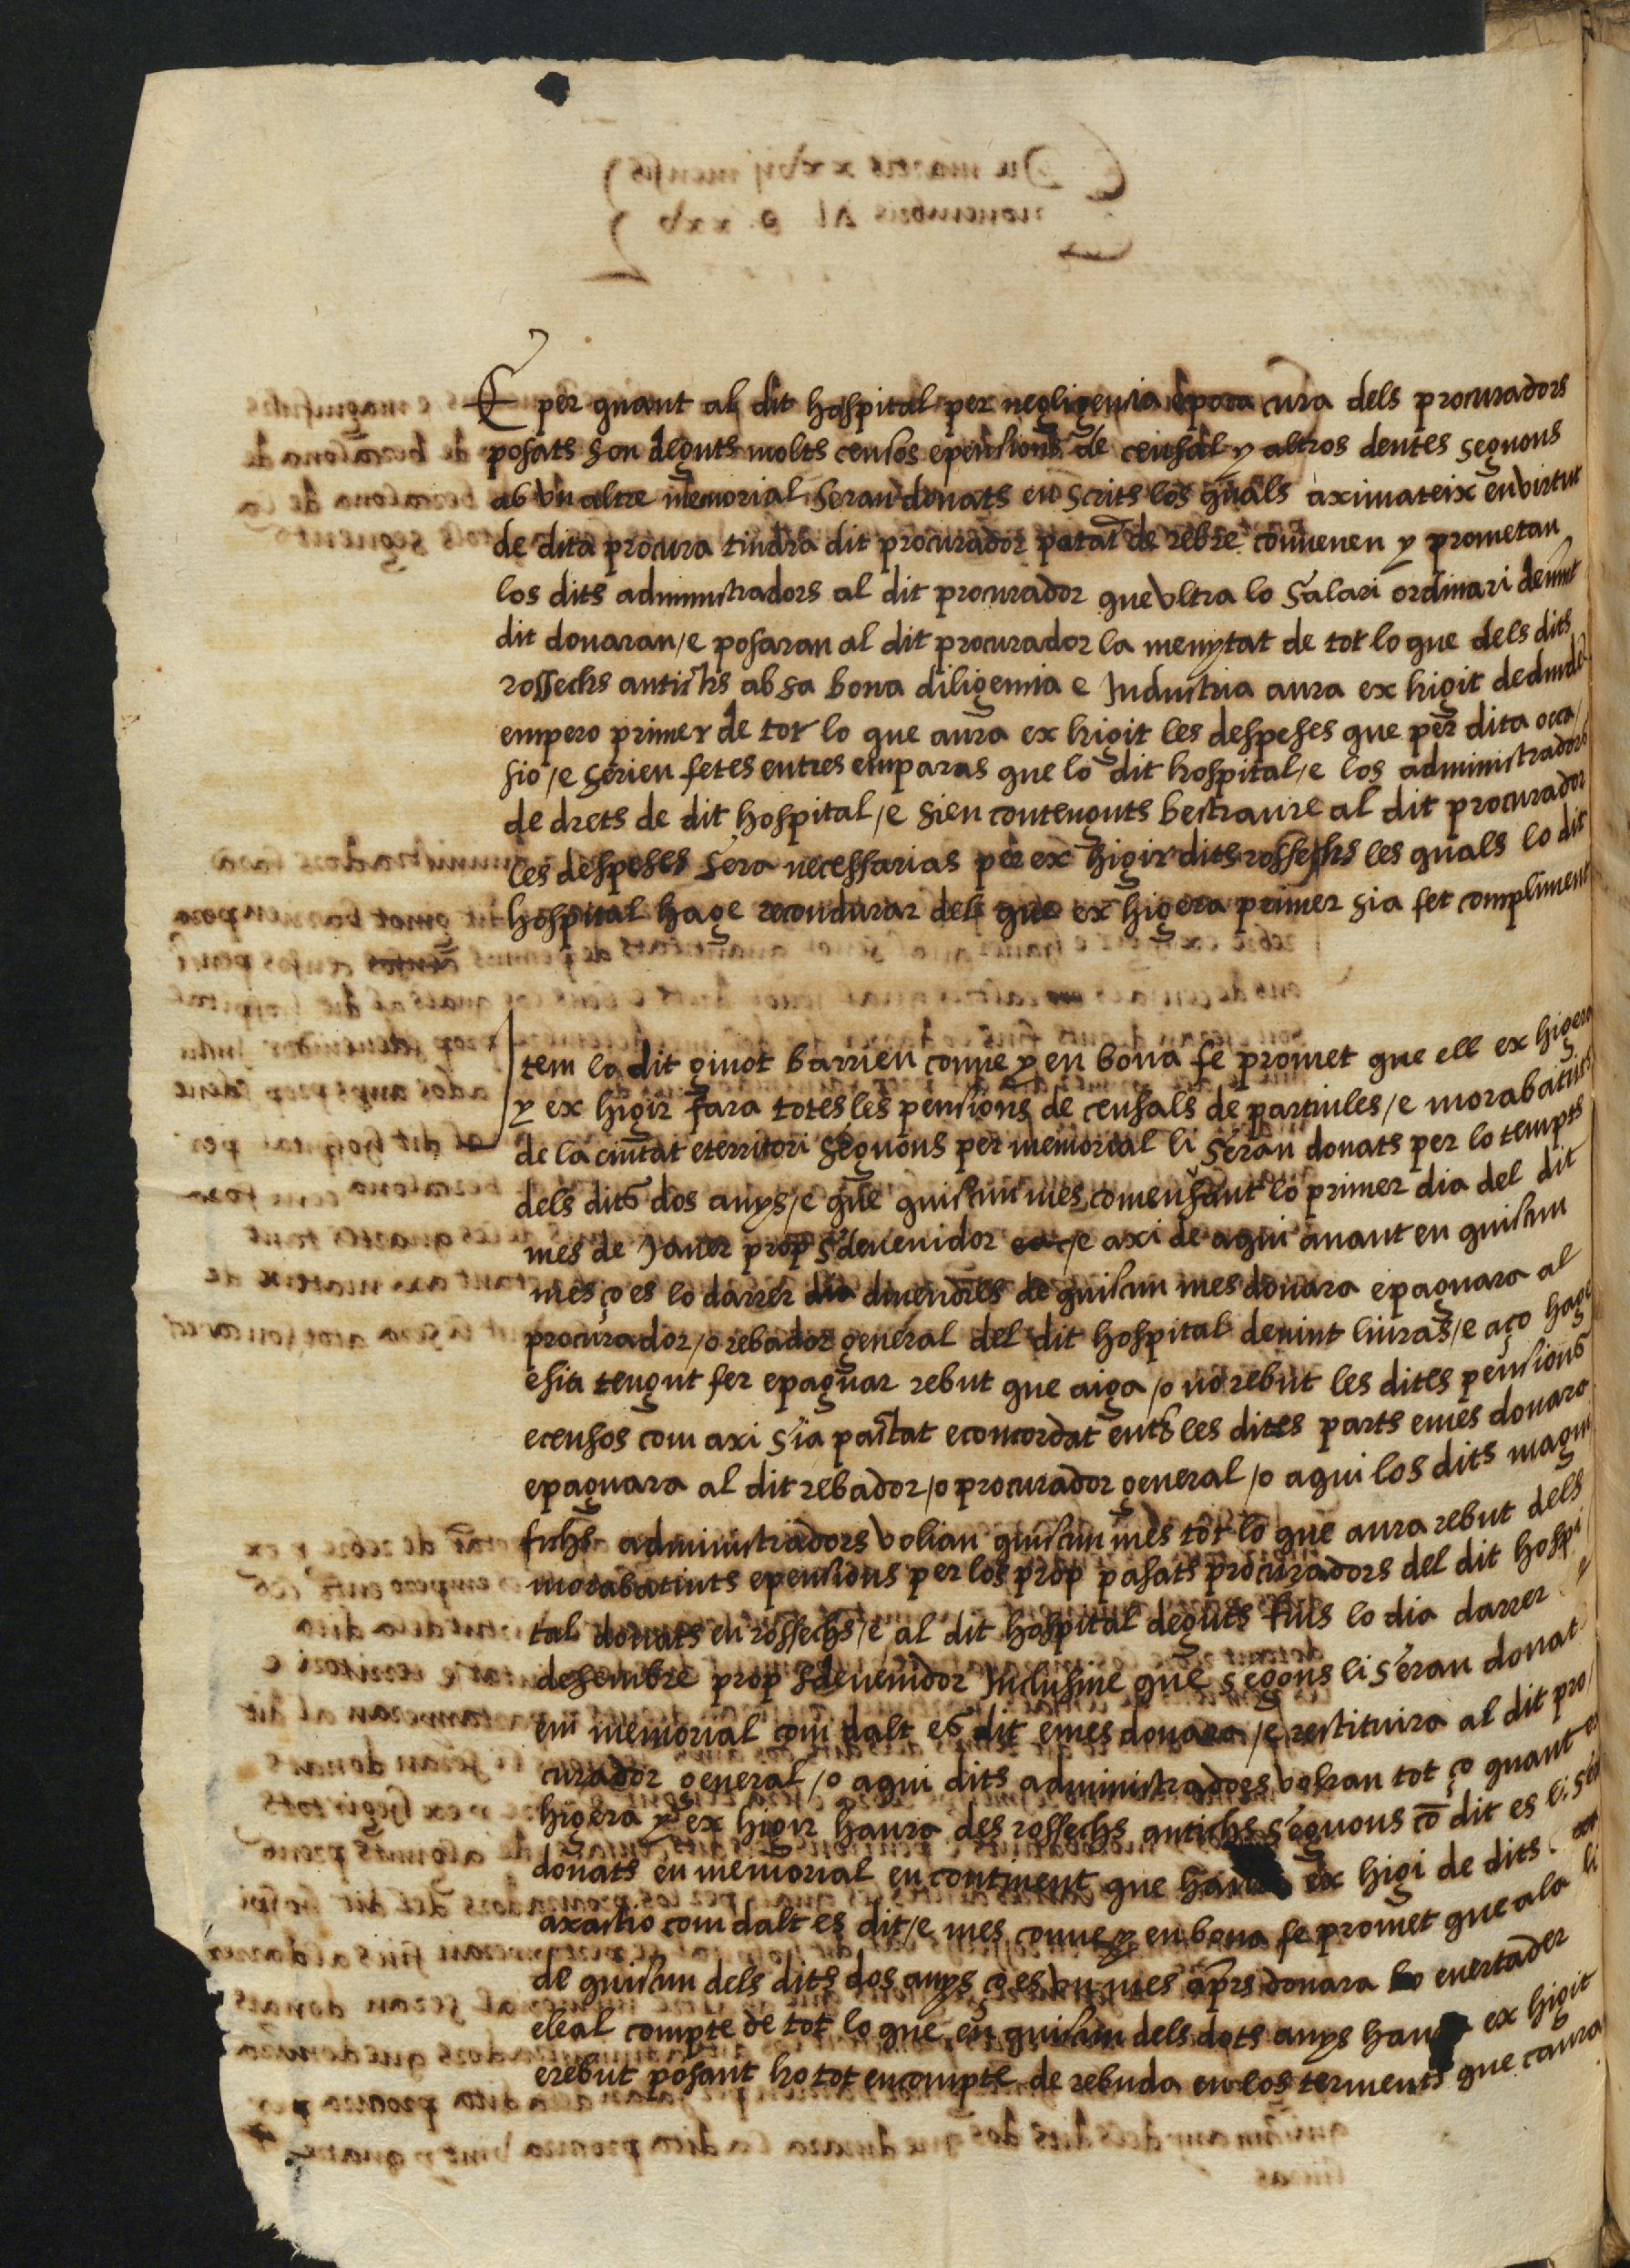 E per quant al dit hospital per negligenia epora cura dels procuradors
posats son deguts molts censos epensions de censal y altros deutes seguons
ab vn altre memorial seran donats en scrits los quals aximateix en virtut
de dita procura tindra dit procurador potat de rebre conuenen y prometan
los dits administradors al dit procurador que vltra lo salari ordinari deuint
dit donaran/e posaran al dit procurador la meytat de tot lo que dels dits
rossechs antichs ab sa bona diligemia e Industria aura ex higit
empero primer de tot lo que aura ex higit les despeses que per dita occa/
sio/e serien fetes entres emparas que lo dit hospital/e los administradors
de drets de dit hospital/e sien contenguts bestraure al dit procurador
les despeses sera necessarias per ex higir dits rossechs les quals lo dit
hospital hage recondurar del que ex higera primer sia fet compliment
Item lo dit ginot barrieu conue y en bona fe promet que ell ex higera
y ex higir fara totes les pensions de censals de partiules/e morabatins
de la ciutat eterritori seguons per memorial li seran donats per lo tempts
dels dits dos anys/e que quiscun mes comensant lo primer dia del dit
mes de Janer prop sdeuenidor /e axi de aqui auant en quiscun
mes ço es lo darrer diuendres de quiscun mes donara epaguara al
procurador/o rebador general del dit hospital deuint liuras/e aço hage
esia tengut fer epaguar rebut que aiga/o no rebut les dites pensions
ecensos com axi sia pactat econcordat entre les dites parts emes donara
epaguara al dit rebador/o procurador general/o aqui los dits magni
fichs administradors volian quiscun mes tot lo que aura rebut dels
morabatints epensions per los prop pasats procuradors del dit hospi
tal donats en rossechs/e al dit hospital deguts fins lo dia darrer
desembre prop sdeuenidor Inclusiue que segons li seran donat
en memorial com dalt es dit emes donara/e restituira al dit pro/
curador general/o aqui dits administradors volran tot ço quant ex
higera y ex higir haura des rossechs antichs seguons cõ dit es li
donats en memorial en continent que ex higi de dits
axactio com dalt es dit/e mes conue y en bona fe promet que a la
de quiscun dels dits dos anys ço es vn mes aprs donara euertader
eleal compte de tot lo que en quiscun dels dots anys ex higit
erebut posant ho tot en compte de rebuda en los terments que caura